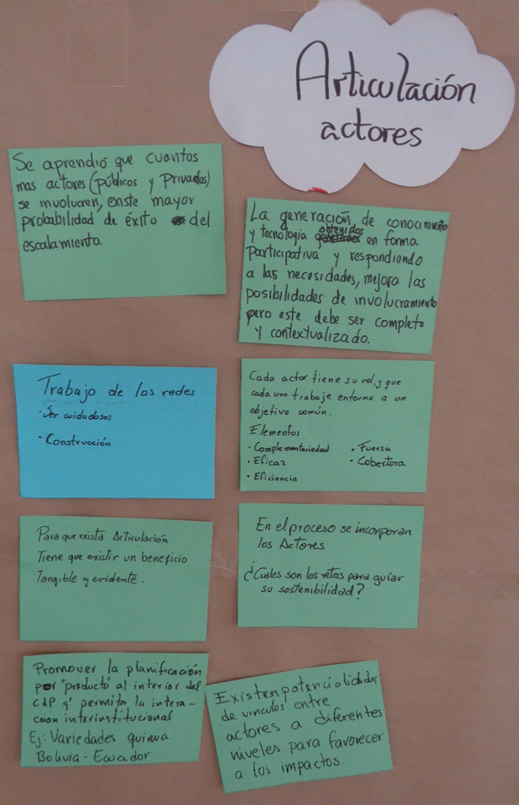 Articulación
actores
Se aprendió que cuantos
mas actores (públicos y Privados)
se involucren, existe mayor
probabilidad de éxito del
escalamiento
La generación, de conocimiento
y tecnología obtenidos en forma
Participativa y respondiendo
a las necesidades, mejora las
posibilidades de involucramiento
pero este debe ser completo
y contextualizado.
Trabajo de las redes
· Ser cuidadosos
· Construcción
Cada actor tiene su rol, y que
cada uno trabaje entorno a un
objetivo común.
Elementos
· Complementariedad
· Eficaz
· Eficiencia
· Fuerza
· Cobertura
Para que exista Articulación
Tiene que existir un beneficio
Tangible y evidente.
En el proceso se incorporan
los Actores
¿Cuáles son los retos para guiar
su sostenibilidad?
Promover la planificación
por "producto" al interior del
y permita la intera-
ccion interinstitucional
Ej: Variedades quinua
Bolivia - Ecuador
Existen potencialidades
de vinculos entre
actores a diferentes
niveles para favorecer
a los impactos.